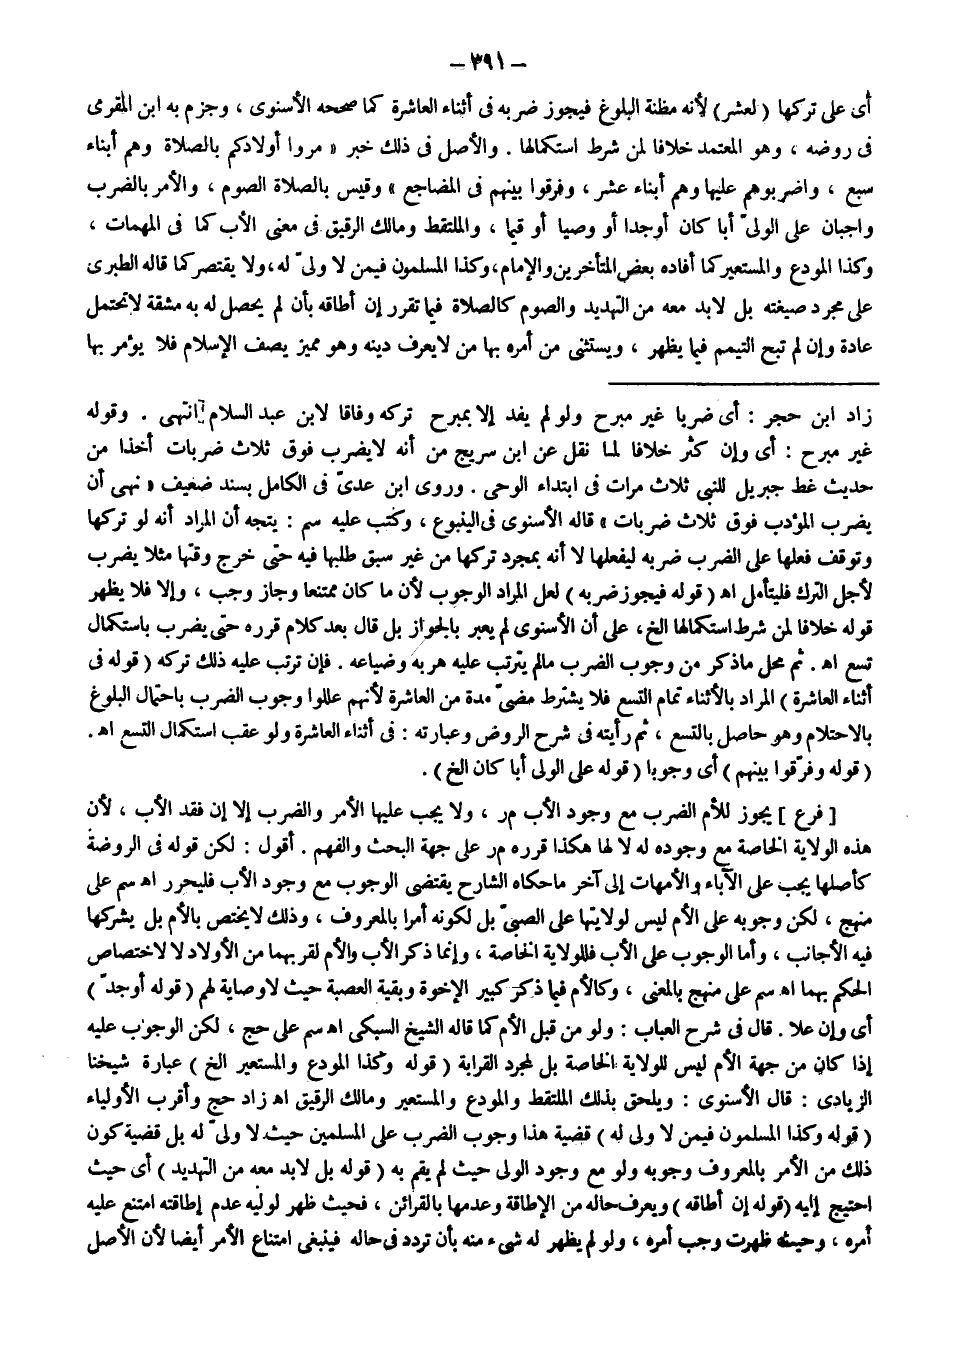 – ٣٩١ –
أى على تركها ( لعشر ) لأنه مظنة البلوغ فيجوز ضربه فى أثناء العاشرة كما صححه الأسنوى ، وجزم به ابن المقرى
فى روضه ، وهو المعتمد خلافا لمن شرط استكمالها . والأصل فى ذلك خبر « مروا أولادكم بالصلاة وهم أبناء
سبع ، واضربوهم عليها وهم أبناء عشر ، وفرقوا بينهم فى المضاجع » وقيس بالصلاة الصوم ، والأمر بالضرب
واجبان على الولىّ أبا كان أوجدا أو وصيا أو قيما ، والملتقط ومالك الرقيق فى معنى الأب كما فى المهمات ،
وكذا المودع والمستعير كما أفاده بعض المتأخرين والإمام، وكذا المسلمون فيمن لا ولىّ له، ولا يقتصر كما قاله الطبرى
على مجرد صيغته بل لابد معه من التهديد والصوم كالصلاة فيما تقرر إن أطاقه بأن لم يحصل له به مشقة لاتحتمل
عادة وإن لم تبح التيمم فيما يظهر ، ويستثنى من أمره بها من لايعرف دينه وهو مميز يصف الإسلام فلا يؤمر بها
زاد ابن حجر : أى ضربا غير مبرح ولو لم يفد إلا بمبرح تركه وفاقا لابن عبد السلام انتهى . وقوله
غير مبرح : أى وإن كثر خلافا لما نقل عن ابن سريج من أنه لايضرب فوق ثلاث ضربات أخذا من
حديث غط جبريل للنبى ثلاث مرات فى ابتداء الوحى . وروى ابن عدىّ فى الكامل بسند ضعيف « نهى أن
يضرب المؤدب فوق ثلاث ضربات » قاله الأسنوى فى الينبوع ، وكتب عليه سم : يتجه أن المراد أنه لو تركها
وتوقف فعلها على الضرب ضربه ليفعلها لا أنه بمجرد تركها من غير سبق طلبها فيه حتى خرج وقتها مثلا يضرب
لأجل الترك فليتأمل اه ( قوله فيجوز ضربه ) لعل المراد الوجوب لأن ما كان ممتنعا وجاز وجب ، وإلا فلا يظهر
قوله خلافا لمن شرط استكمالها الخ، على أن الأسنوى لم يعبر بالجواز بل قال بعد كلام قرره حتى يضرب باستكمال
تسع اه . ثم محل ماذكر من وجوب الضرب مالم يترتب عليه هربه وضياعه . فإن ترتب عليه ذلك تركه ( قوله فى
أثناء العاشرة ) المراد بالأثناء تمام التسع فلا يشترط مضىّ مدة من العاشرة لأنهم عللوا وجوب الضرب باحتمال البلوغ
بالاحتلام وهو حاصل بالتسع ، ثم رأيته فى شرح الروض وعبارته : فى أثناء العاشرة ولو عقب استكمال التسع اه .
( قوله وفرّقوا بينهم ) أى وجوبا ( قوله على الولى أبا كان الخ ) .
[ فرع ] يجوز للأم الضرب مع وجود الأب م ر ، ولا يجب عليها الأمر والضرب إلا إن فقد الأب ، لأن
هذه الولاية الخاصة مع وجوده له لا لها هكذا قرره م ر على جهة البحث والفهم . أقول : لكن قوله فى الروضة
كأصلها يجب على الآباء والأمهات إلى آخر ماحكاه الشارح يقتضى الوجوب مع وجود الأب فليحرر اه سم على
منهج ، لكن وجوبه على الأم ليس لولايتها على الصبىّ بل لكونه أمرا بالمعروف ، وذلك لايختص بالأم بل يشركها
فيه الأجانب ، وأما الوجوب على الأب فللولاية الخاصة ، وإنما ذكر الأب والأم لقربهما من الأولاد لا لاختصاص
الحكم بهما اه سم على منهج بالمعنى ، وكالأم فيما ذكر كبير الإخوة وبقية العصبة حيث لاوصاية لهم ( قوله أوجدّ )
أى وإن علا . قال فى شرح العباب : ولو من قبل الأم كما قاله الشيخ السبكى اه سم على حج ، لكن الوجوب عليه
إذا كان من جهة الأم ليس للولاية الخاصة بل لمجرد القرابة ( قوله وكذا المودع والمستعير الخ ) عبارة شيخنا
الزيادى : قال الأسنوى : ويلحق بذلك الملتقط والمودع والمستعير ومالك الرقيق اه زاد حج وأقرب الأولياء
( قوله وكذا المسلمون فيمن لا ولى له ) قضية هذا وجوب الضرب على المسلمين حيث لا ولىّ له بل قضية كون
ذلك من الأمر بالمعروف وجوبه ولو مع وجود الولى حيث لم يقم به ( قوله بل لابد معه من التهديد ) أى حيث
احتيج إليه (قوله إن أطاقه ) ويعرف حاله من الإطاقة وعدمها بالقرائن ، فحيث ظهر لوليه عدم إطاقته امتنع عليه
أمره ، وحيث ظهرت وجب أمره ، ولو لم يظهر له شىء منه بأن تردد فى حاله فينبغى امتناع الأمر أيضا لأن الأصل